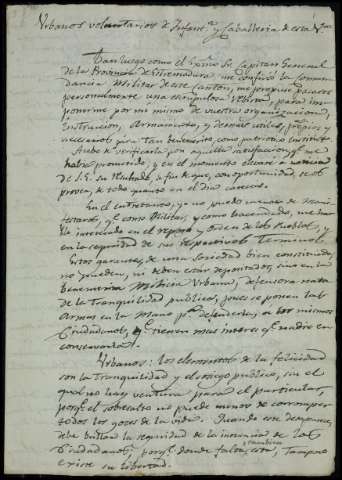 Urbanos voluntarios de Infant.ª y Caballeria de esta Va.
Tan luego como el Exmo Sr Capitan General
de la Provincia de Estremadura, me confirió la Coman-
dancia Militar de este Canton, me propuse pasaros
personalmente una escrupulosa Revista, para im-
ponerme por mi mismo de vuestra organizacion,
Instruccion, Armamento, y demas utiles, propios y
necesarios para tan benemerito, como patriotico instituto
Acabo de verificarla, con mucha mas satisfaccion, q.e me
habia prometido, y en el momento elevaré a noticia
de S.E. su resultado, a fin de que, con oportunidad, se os
provea, de todo quanto en el dia careceis.
En el entretanto, yo no puedo menos de mani-
festaros, q.e como Militar, y como hacendado, me ha-
llo interesado en el reposo y orden de los Pueblos, y
en la seguridad de sus respectivos Terminos.
Estas garantes, de una Sociedad bien constituida,
no pueden, ni deben estar depositados, sino en la
benemerita Milicia Urbana, defensora nata
de la Tranquilidad publica, pues se ponen las
Armas en la Mano p.a defenderla, en los mismos
Ciudadanos, q.e tienen mas interes q.e nadie en
conservarla.
Urbanos: los elementos de la felicidad
son la Tranquilidad y el sosiego publico, sin el
qual no hay ventura para el particular,
porq.e el sobresalto no puede menos de corromper
todos los goces de la vida. Quando este desaparece,
debe brillar la seguridad de la inocencia de los
Ciudadanos, porq.e donde falta esta, tampoco
existe su libertad.